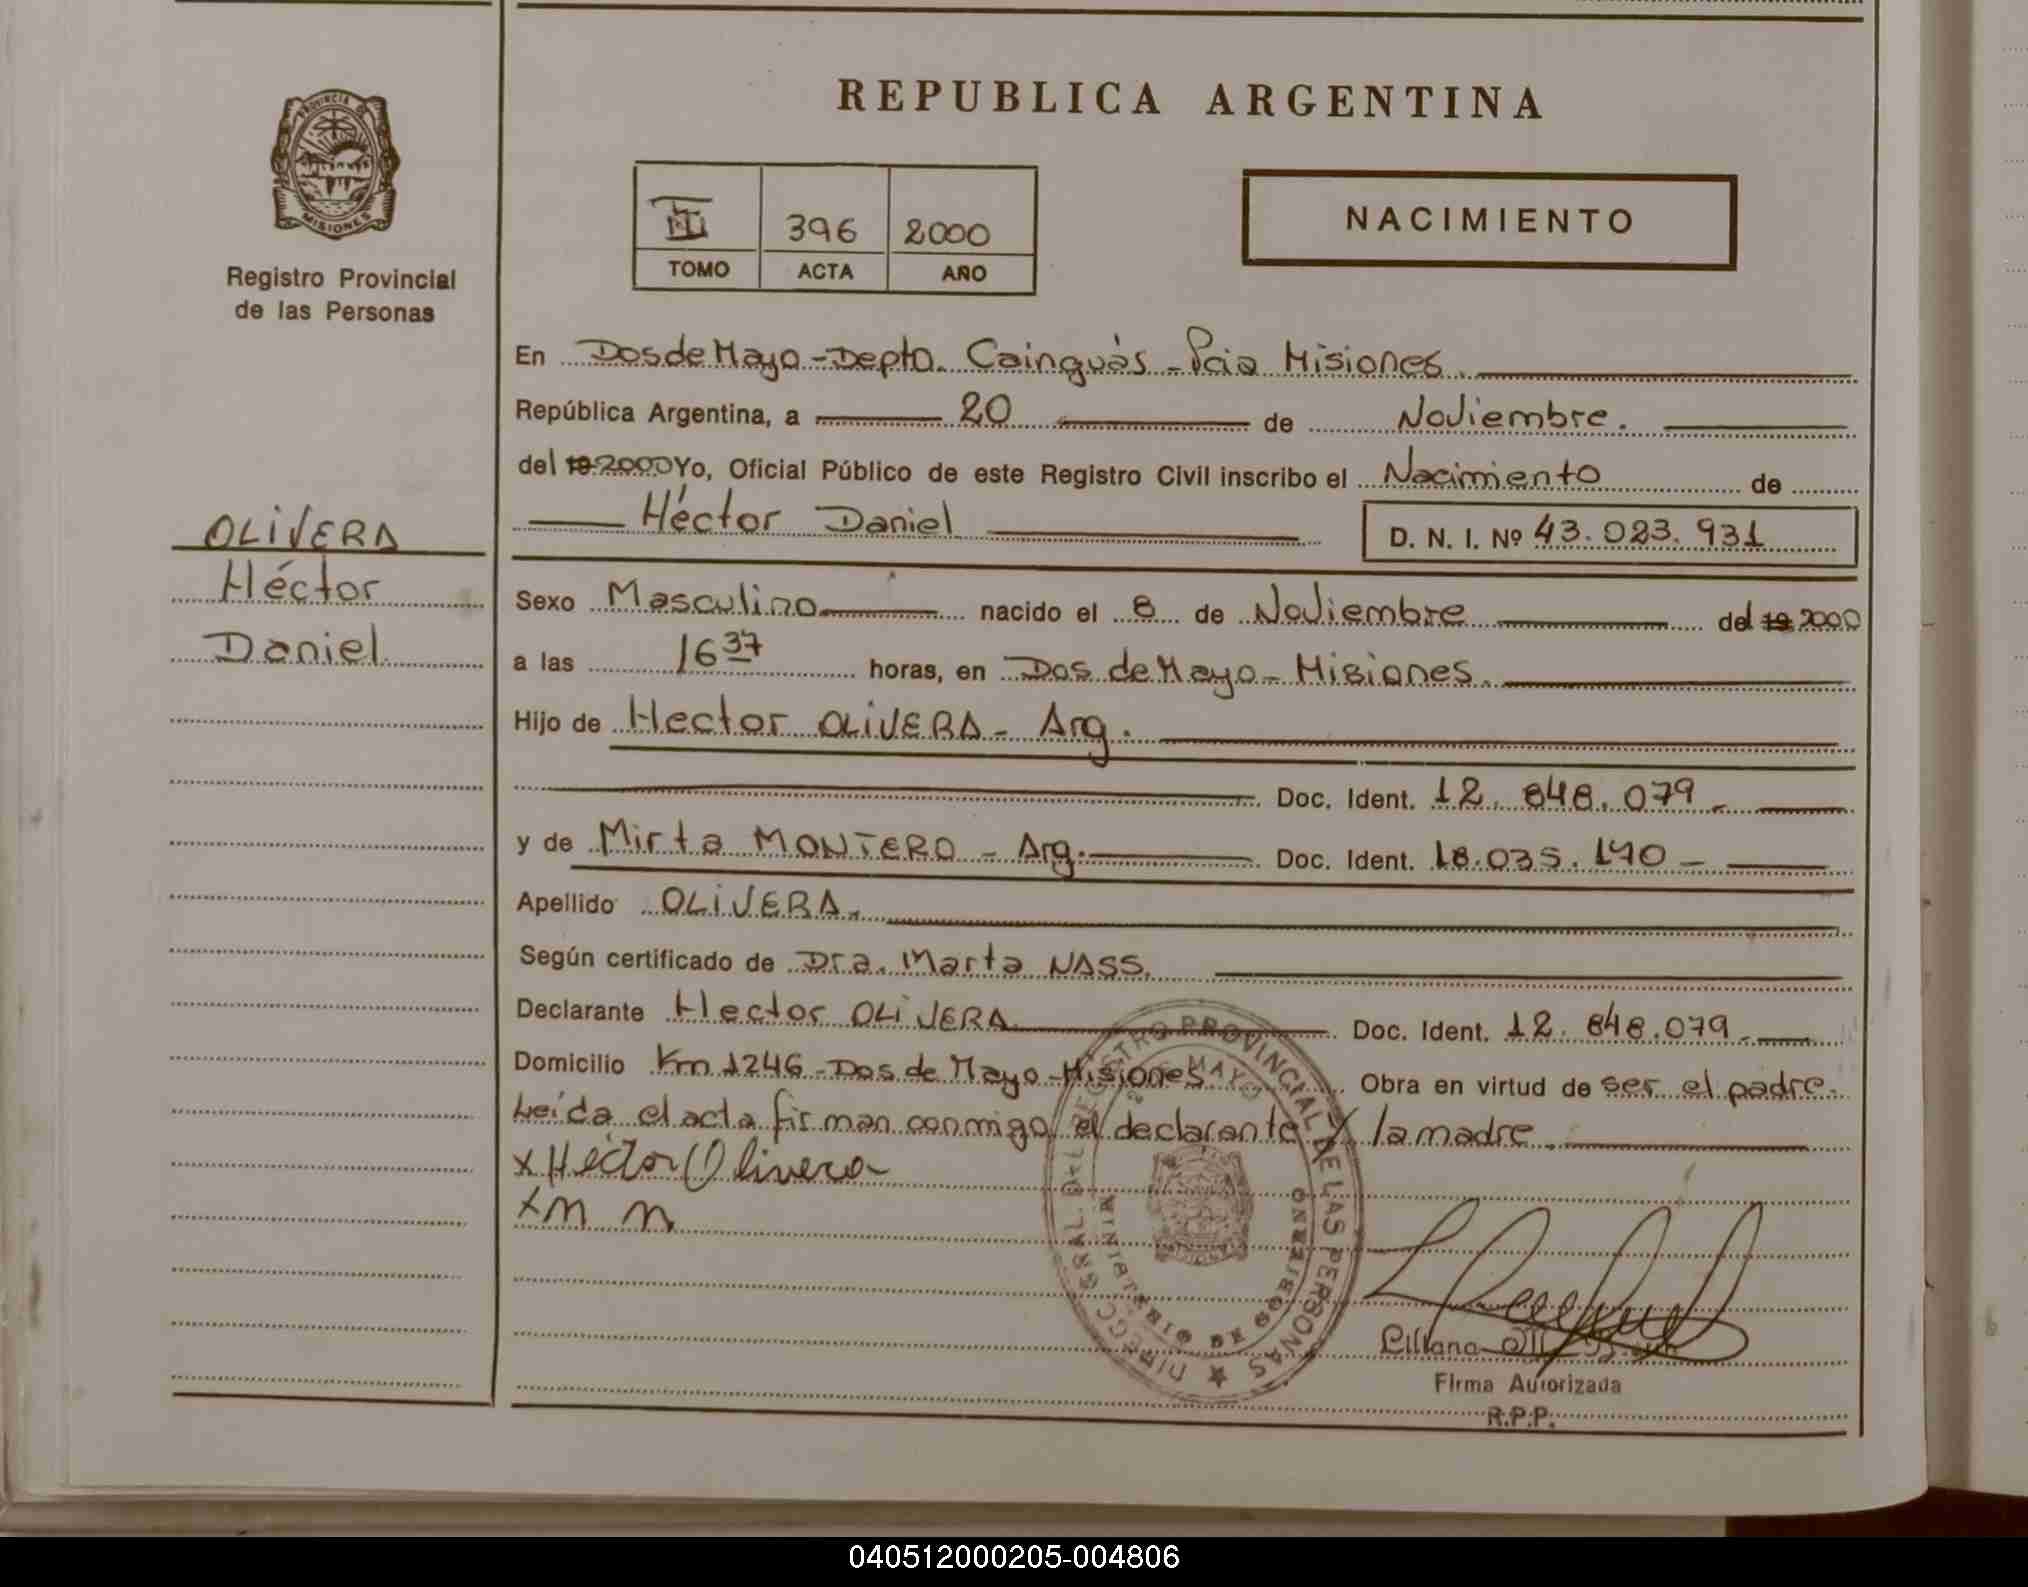 REPUBLICA ARGENTINA
PROVINCIA DE
MISIONES
Registro Provincial
de las Personas
III 396 2000
TOMO ACTA AÑO
NACIMIENTO
En Dos de Mayo - Depto. Cainguás - Pcia Misiones.
República Argentina, a 20 de Noviembre.
del 19 2000 Yo, Oficial Público de este Registro Civil inscribo el Nacimiento de
Héctor Daniel D. N. I. Nº 43.023.931
OLIVERA
Héctor
Daniel
Sexo Masculino nacido el 8 de Noviembre del 19 2000
a las 16 37 horas, en Dos de Mayo - Misiones.
Hijo de Hector OLIVERA - Arg.
Doc. Ident. 12.848.079 -
y de Mirta MONTERO - Arg. Doc. Ident. 18.035.140 -
Apellido OLIVERA.
Según certificado de Dra. Marta NASS.
Declarante Hector OLIVERA Doc. Ident. 12.848.079 -
Domicilio Km 1246 - Dos de Mayo - Misiones Obra en virtud de ser el padre.
Leída el acta firman conmigo el declarante y la madre.
x Héctor Olivera
x M M
REGISTRO PROVINCIAL DE LAS PERSONAS
MAYO
MINISTERIO DE GOBIERNO
Liliana M.
Firma Autorizada
R.P.P.
040512000205-004806